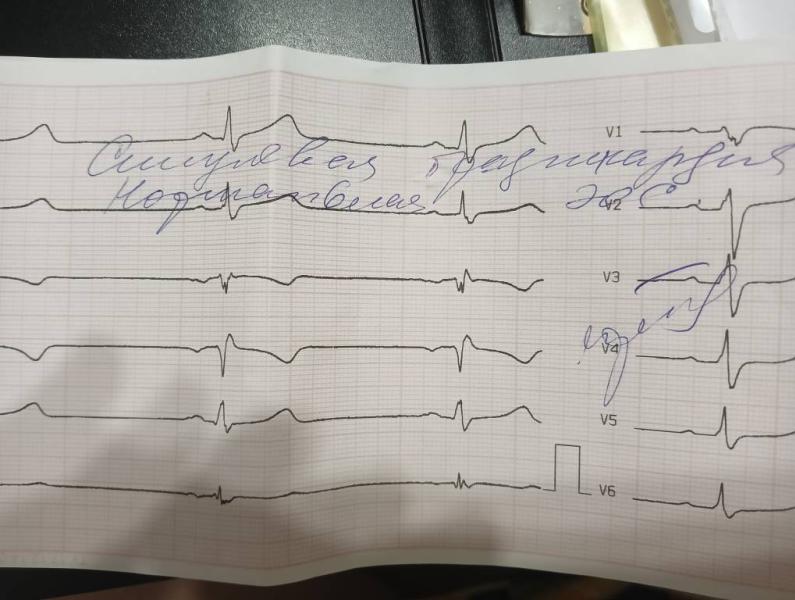 V1
Синусовая брадикардия
Нормальная ЭОС
V2
V3
V4
V5
V6